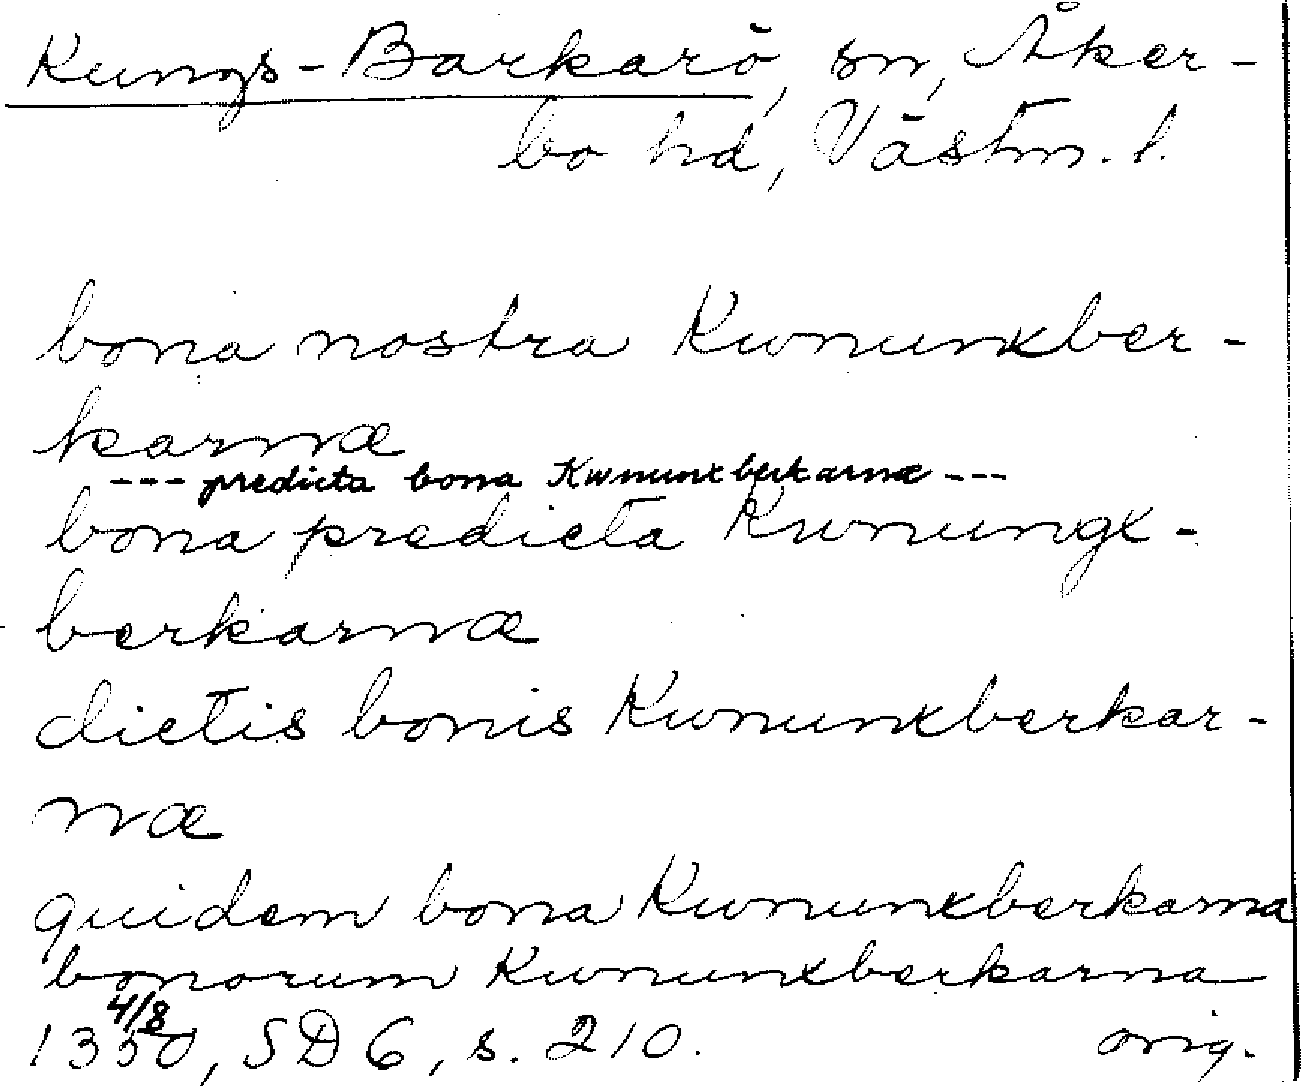 Kungs-Barkarö, sn, Åker-
bo hd, Västm. l.
bona nostra Kwnunxber-
karnæ
--- predicta bona Kwnunxberkarnæ ---
bona predicta Kwnungx-
berkarnæ
dictis bonis Kwnunxberkar-
næ
quidem bona Kwnunxberkarna
bonorum Kwnunxberkarna
4/8
1350, SD 6, s. 210. orig.